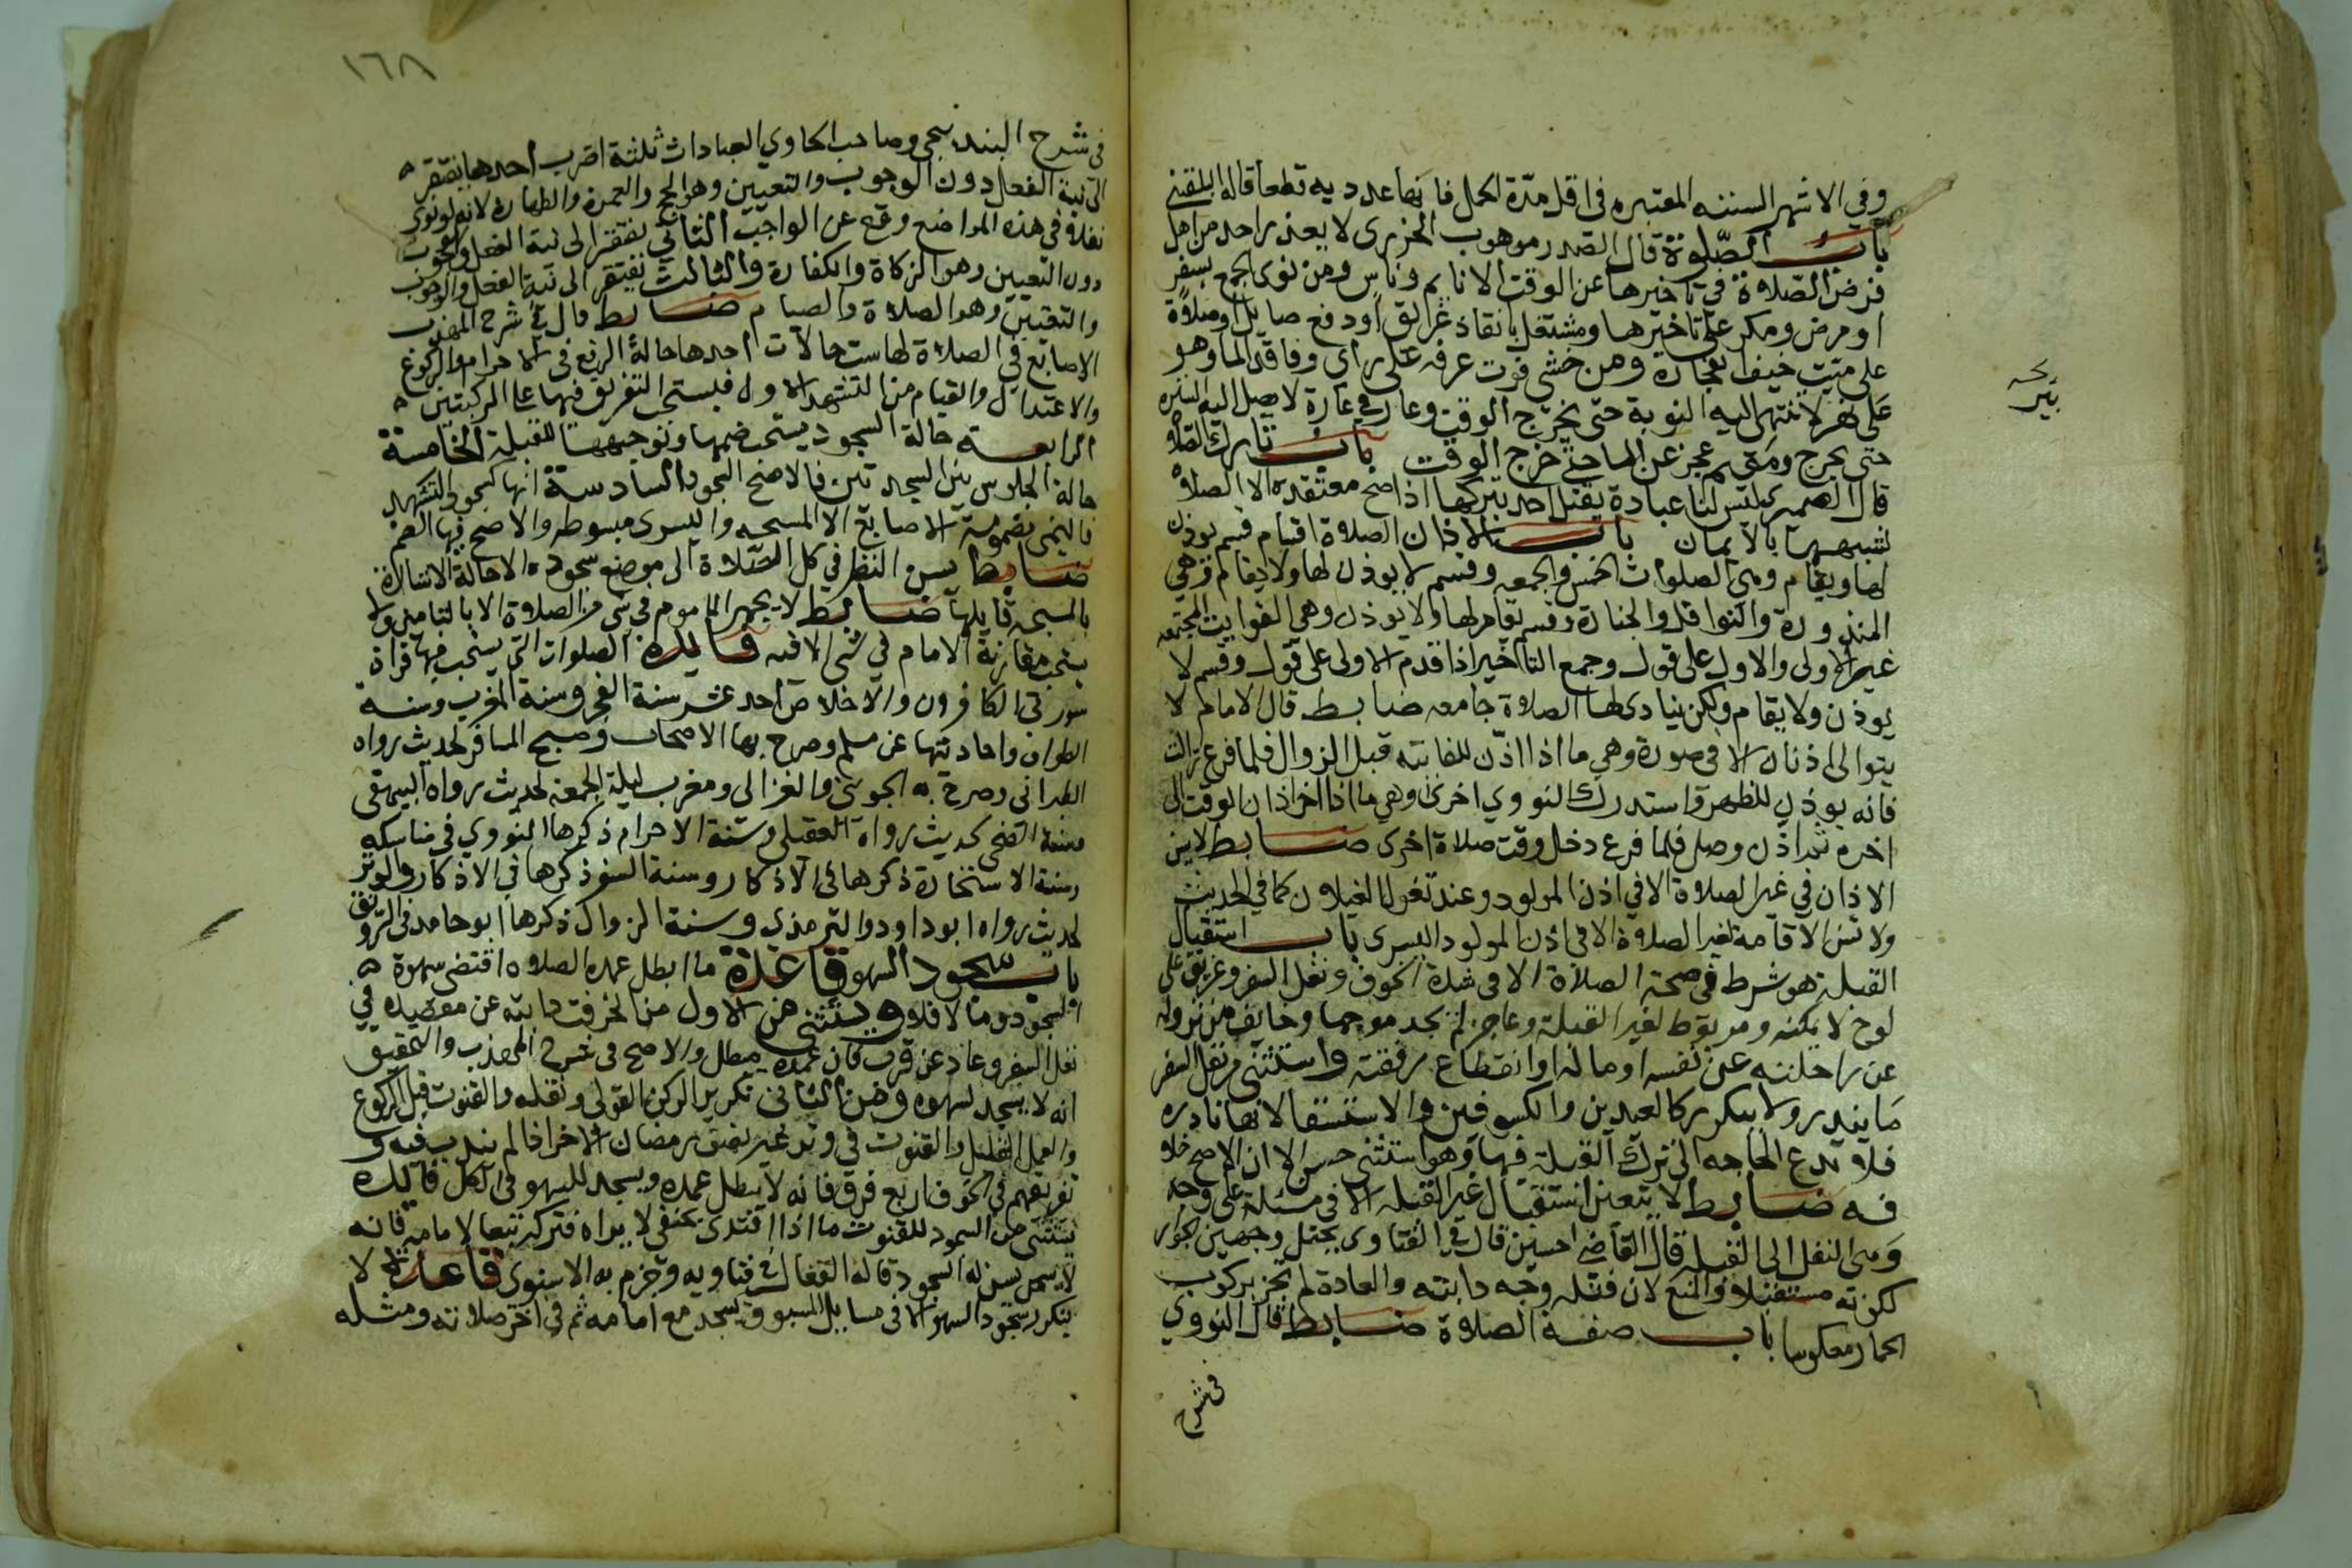 وفي الاشهر السته المعتبره في اقل مدة الحمل فانها عدديه قطعا قاله البلقيني
باب الصلوة قال الصدر موهوب الجزري لا يعذر احد من اهل
فرض الصلاة في تاخيرها عن الوقت الا نايم وناس ومن نوى الجمع بسفر
او مرض ومكره على تاخيرها ومشتغل بانقاذ غريق او دفع صايل او صلاة
على ميت خيف انفجاره ومن خشي فوت عرفه على راي وفاقد الما وهو
على بئر لا تنتهي اليه النوبة حتى يخرج الوقت وعار في عراة لا يصل اليه السترة
حتى يخرج ومقيم عجز عن الما حتى خرج الوقت باب تارك الصلاة
قال الصيمري ليس لنا عبادة يقتل احد بتركها اذا صح معتقده الا الصلاة
لشبهها بالايمان باب الاذان الصلاة اقسام قسم يوذن
لها ويقام وهي الصلوات الخمس والجمعه وقسم لا يوذن لها ولا يقام وهي
المنذورة والنوافل والجنازة وقسم يقام لها ولا يوذن وهي الفوايت المجتمعه
غير الاولى والاول على قول وجمع التاخير اذا قدم الاولى على قول وقسم لا
يوذن ولا يقام ولكن ينادى لها الصلاة جامعه ضابط قال الامام لا
يتوالى اذانان الا في صورة وهي ما اذا اذن للفايته قبل الزوال فلما فرغ زالت
فانه يوذن للظهر واستدرك النووي اخرى وهي ما اذا اخر اذان الوقت الى
اخره ثم اذن وصلى فلما فرغ دخل وقت صلاة اخرى ضابط لا يسن
الاذان في غير الصلاة الا في اذن المولود وعند تغول الغيلان كما في الحديث
ولا تسن الاقامة لغير الصلاة الا في اذن المولود اليسرى باب استقبال
القبلة هو شرط في صحة الصلاة الا في شدة الخوف ونفل السفر وغريق على
لوح لا يمكنه ومربوط لغير القبلة وعاجز لم يجد موجها وخايف من نزوله
عن راحلته على نفسه او ماله او انقطاع رفقته واستثنى من نفل السفر
ما يندر ولا يتكرر كالعيدين والكسوفين والاستسقا لانها نادره
فلا تدع الحاجه الى ترك القبلة فيها وهو استثنى حسن الا ان الاصح خلا
فه ضابط لا يتعين استقبال غير القبله الا في مسئلة على وجه
وهي النفل الى القبله قال القاضي حسين قال في الفتاوى يحتمل وجهين الجواز
لكونه مستقبلا والمنع لان قبلته وجه دابته والعادة لم تجز بركوب
الحمار معكوسا باب صفة الصلاة ضابط قال النووي
في شرح
١٦٨
في شرح البندنيجي وصاحب الحاوي العبادات ثلثة اضرب احدها يفتقر
الى نية الفعل دون الوجوب والتعيين وهو الحج والعمرة والطهارة لانه لو نوى
نفلا في هذه المواضع وقع عن الواجب الثاني يفتقر الى نية الفعل والوجوب
دون التعيين وهو الزكاة والكفارة والثالث يفتقر الى نية الفعل والوجوب
والتعيين وهو الصلاة والصيام ضابط قال في شرح المهذب
الاصابع في الصلاة لها ست حالات احدها حالة الرفع في الاحرام والركوع
والاعتدال والقيام من التشهد الاول فيستحب التفريق فيها على الركبتين
الرابعة حالة السجود يستحب ضمها وتوجيهها للقبلة الخامسة
حالة الجلوس بين السجدتين فالاصح السجود السادسة انها كسجود التشهد
فاليمنى مضمومة الاصابع الا المسبحه واليسرى مبسوطه والاصح فيها الضم
ضابط يسن النظر في كل الصلاة الى موضع سجوده الا حالة الاشارة
بالمسبحه فاليها ضابط لا يجهر الماموم في شي من الصلاة الا بالتامين ولا
يستحب مقارنة الامام في شي الا فيه فايدة الصلوات التي يستحب فيها قراة
سورتي الكافرون والاخلاص احد عشر سنة الفجر وسنة المغرب وسنة
الطواف واحاديثها عن مسلم وصرح بها الاصحاب وصبح المسافر لحديث رواه
الطبراني وصرح به الجويني والغزالي ومغرب ليلة الجمعة لحديث رواه البيهقي
وسنة الضحى لحديث رواه العقيلي وسنة الاحرام ذكرها النووي في مناسكه
وسنة الاستخارة ذكرها في الاذكار وسنة السفر ذكرها في الاذكار والوتر
لحديث رواه ابو داود والترمذي وسنة الزوال ذكرها ابو حامد في الرونق
باب سجود السهو قاعدة ما ابطل عمده الصلاة اقتضى سهوه
السجود وما لا فلا ويستثنى من الاول من انحرفت دابته عن مقصده في
نفل السفر وعاد عن قرب فان عمده مبطل والاصح في شرح المهذب والتحقيق
انه لا يسجد لسهوه ومن الثاني تكرير الركن القولي ونقله والقنوت قبل الركوع
والعمل القليل والقنوت في وتر غير نصف رمضان الاخر اذا لم نندب فيه و
تفريقهم في الخوف اربع فرق فانه لا يبطل عمده ويسجد للسهو في الكل فايدة
يستثنى من السجود للقنوت ما اذا اقتدى بحنفي لا يراه فتركه تبعا لامامه فانه
لا يسن له السجود قاله القفال في فتاويه وجزم به الاسنوي قاعدة لا
يتكرر سجود السهو الا في مسايل المسبوق يسجد مع امامه ثم في اخر صلاته ومثله